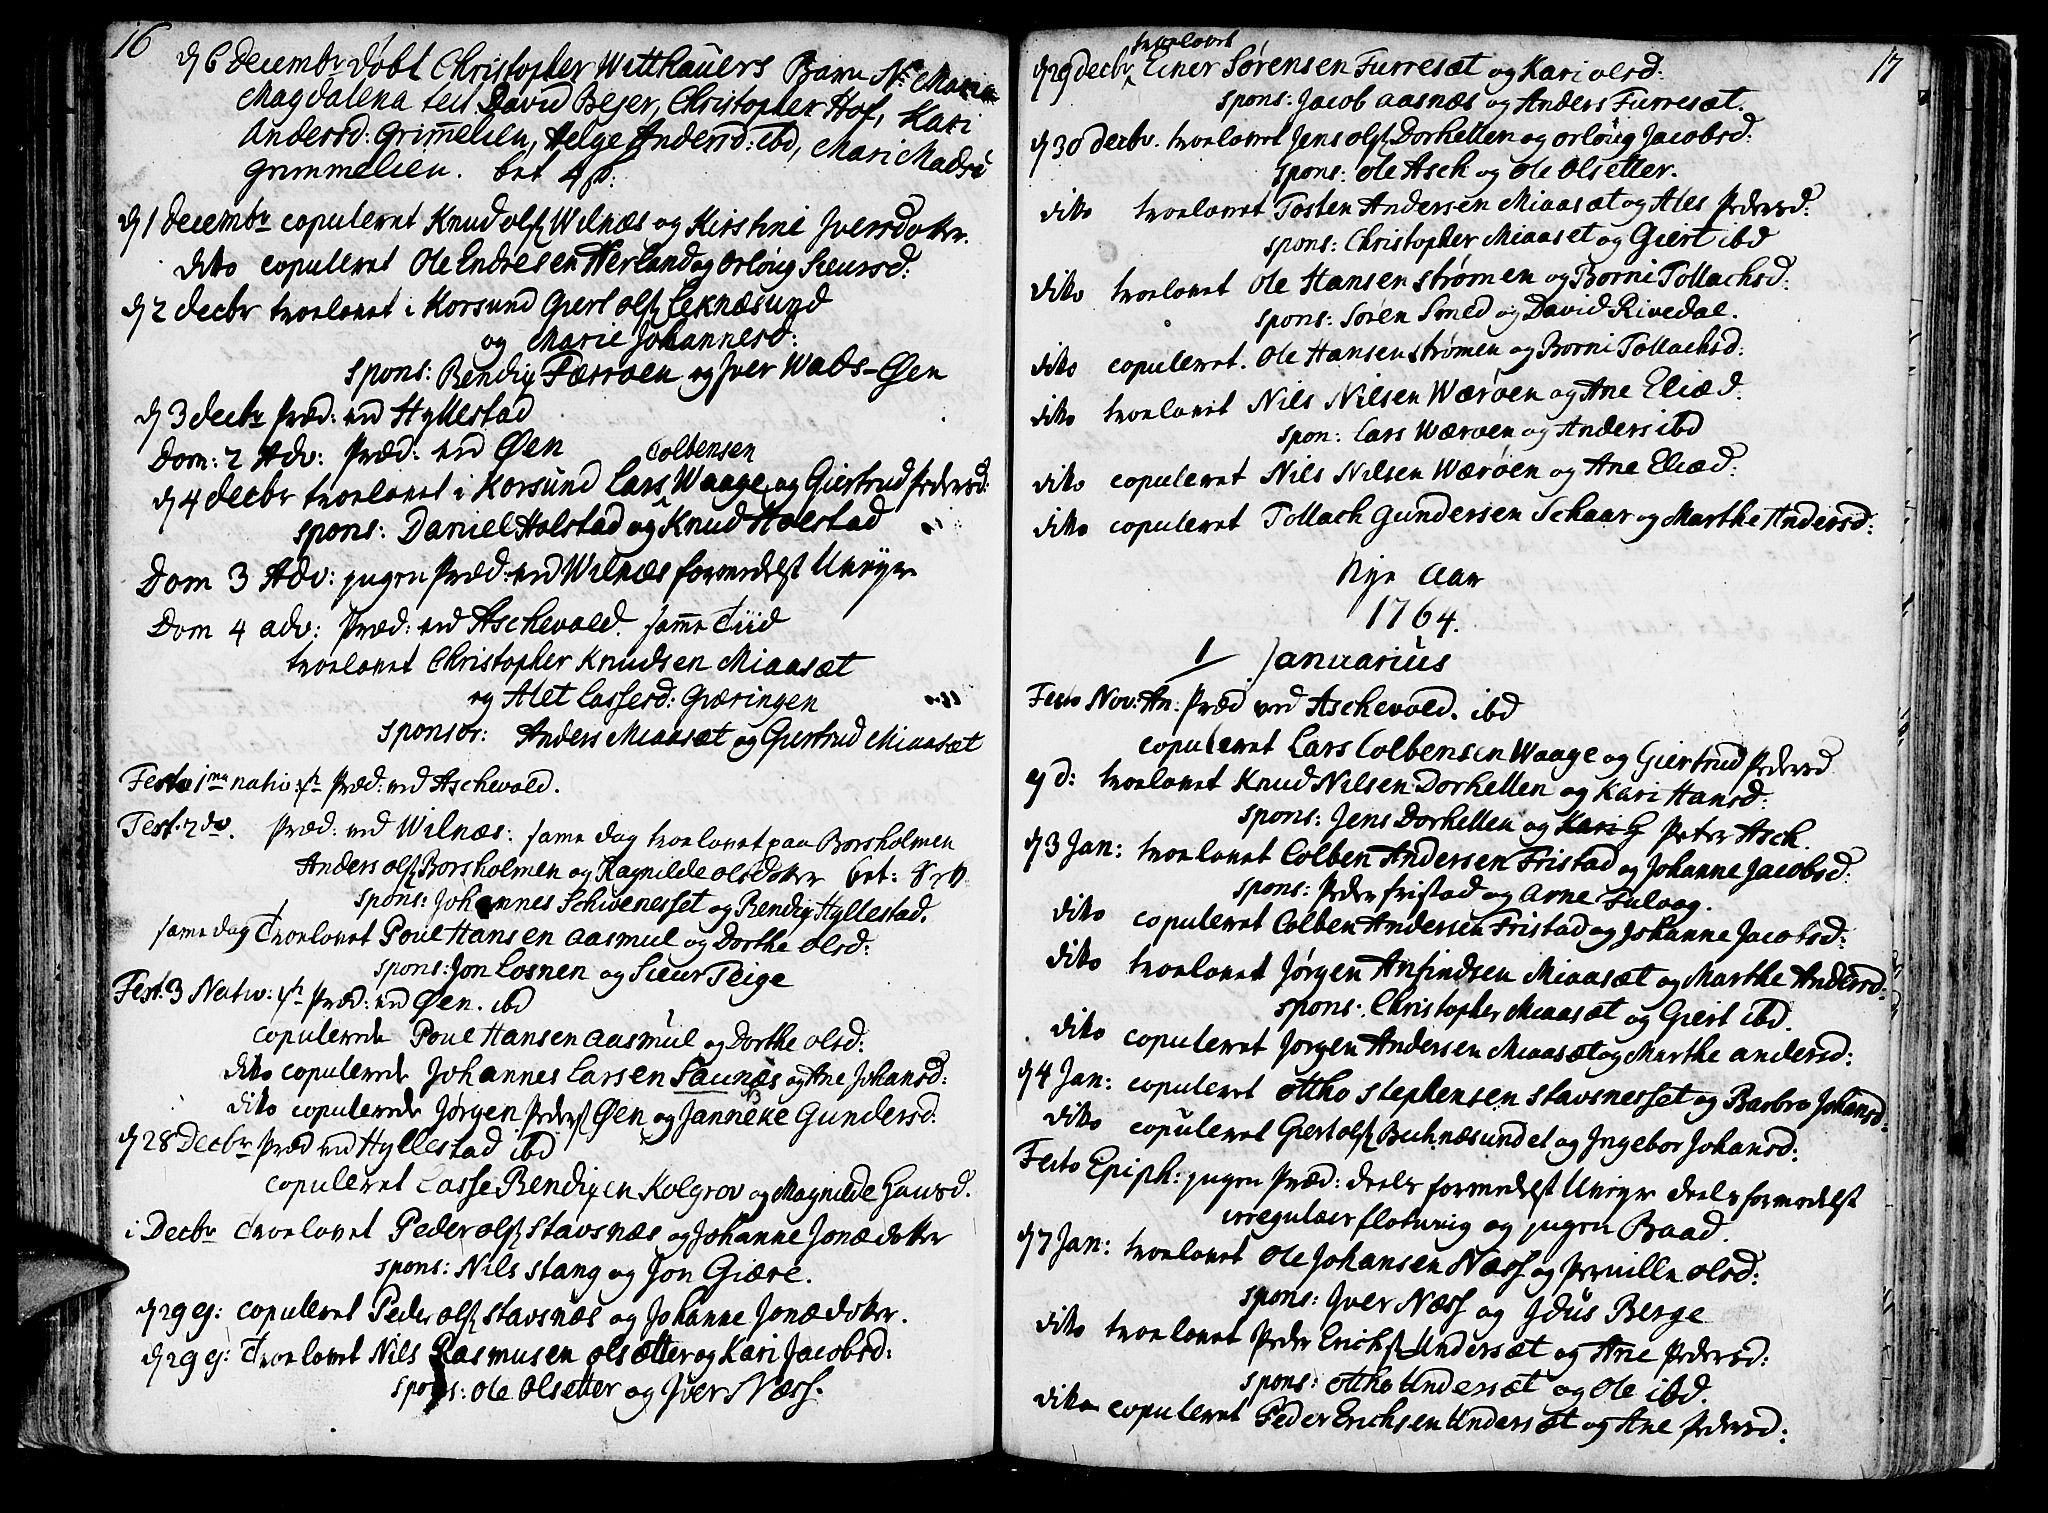 16
d 6 decembr døbt Christopher Witthauers Barn N: Maria
Magdalena test David Bejer, Christopher Hof, Kari
Andersd: Grimelien, Helge Andersd: ibd, Mari Madsd
Grimmelien. bet 4
d 1 decembr copuleret Knud ols Wilnæs og Kirstine Jversdoter.
dito copuleret Ole Endresen Herland og Orløug Siursd:
d 2 decbr troelovet i Korsund Giert ols Leknæsund
og Marie Johannesd:
spons: Bendix Færøen og Jver Wads-Øen
d 3 decbr Præd: ved Hyllestad
Dom: 2 Adv: Præd: ved Øen
Colbensen
d 4 decbr troelovet i Korsund Lars Waage og Giertrud Pedersd:
spons: Daniel Holstad og Knud Holstad
Dom 3 Adv: jngen Præd: ved Wilnæs formedelst Uveyr
Dom 4 adv: Præd: ved Aschevold. samme Tiid
troelovet Christopher Knudsen Miaasæt
og Alet Lassesd: Gæringen
sponsos: Anders Miaasæt og Giertrud Miaasæt
Festo 1ma nativ: Præd: ved Aschevold.
Fest. 2da. Præd: ved Wilnæs: same dag troelovet paa Borsholmen
Anders ols Borsholmen og Ragnilde olsdoter bet:
spons: Johannes Schivenesset og Bendix Hyllestad.
same dag Troelovet Poul Hansen aasmul og Dorthe olsd:
spons: Jon Losnen og Siur Teige
Fest: 3 Nativ: Præd: ved Øen. ibd
copulerede Poul Hansen aasmul og Dorthe olsd:
dito copulerede Johannes Larsen Saunæs og Ane Johansd:
dito copulerede Jørgen Peders Øen og Janneke Gundersd:
d 28 Decbr Præd ved Hyllestad ibd
copuleret Lasse Bendixen Kolgrov og Magnilde Hansd.
i Decbr Troelovet Peder ols Stavsnæs og Johanne Jonædoter
spons: Nils Stang og Jon Giære.
d 29 ej: copuleret Peder ols Stavsnæs og Johanne Jonædoter.
d 29 ej: Troelovet Nils Rasmusen olsætter og Kari Jacobsd:
spons: Ole Olsetter og Jver Næss.
17
troelovet
d 29 decbr Einer Sørensen Furresæt og Kari olsd:
spons: Jacob aasnæs og Anders Furresæt.
d 30 decbr. troelovet Jens ols Dorhellen og orløug Jacobsd:
spons: Ole Asch og Ole Olsetter.
dito troelovet Tosten Andersen Miaasæt og Ales Pedersd:
spons: Christopher Miaaset og Giert ibd
dito troelovet Ole Hansen strømen og Borni Tollachsd:
spons: Søren Smed og David Rivedal.
dito copuleret. Ole Hansen strømen og Borni Tollachsd:
dito troelovet Nils Nilsen Wærøen og Ane Eliæd.
spon: Lars Wærøen og Anders ibd
dito copuleret Nils Nilsen Wærøen og Ane Eliæd:
dito copuleret Tollach Gundersen Schaar og Marthe Andersd:
Nye Aar
1764.
1/ Januarius
Festo Nov: An: Præd ved Aschevold. ibd
copuleret Lars Colbensen Waage og Giertrud Pedersd
ej d: troelovet Knud Nilsen Dorhellen og Kari Hansd:
spons: Jens Dorhellen og Kari G Peter Asch.
d 3 Jan: troelovet Colben Andersen Fristad og Johanne Jacobsd:
spons: Peder fristad og Arne
dito copuleret Colben Andersen Fristad og Johanne Jacobsd:
dito troelovet Jørgen Anfindsen Miaasæt og Marthe Andersd:
spons: Christopher Miaasæt og Giert ibd.
dito copuleret Jørgen Andersen Miaasæt og Marthe andersd:
d 4 Jan: copuleret Ottho Stephensen Stavsnesset og Barbro Johansd:
dito copuleret Giert ols Buhnæsundet og Jngebor Johansd:
Festo Epiph: jngen Præd: deels formedelst Uveyr deels formedelst
irregulær flotning og jngen Baad.
d 7 Jan: troelovet Ole Johansen Næss og Pernille olsd:
spons: Jver Næss og Jdus Berge
dito troelovet Peder Erichs Undersæt og Ane Pedersd:
spons: ottho Undersæt og Ole ibd.
dito copuleret Peder Erichsen Undersæt og Ane Pedersd: